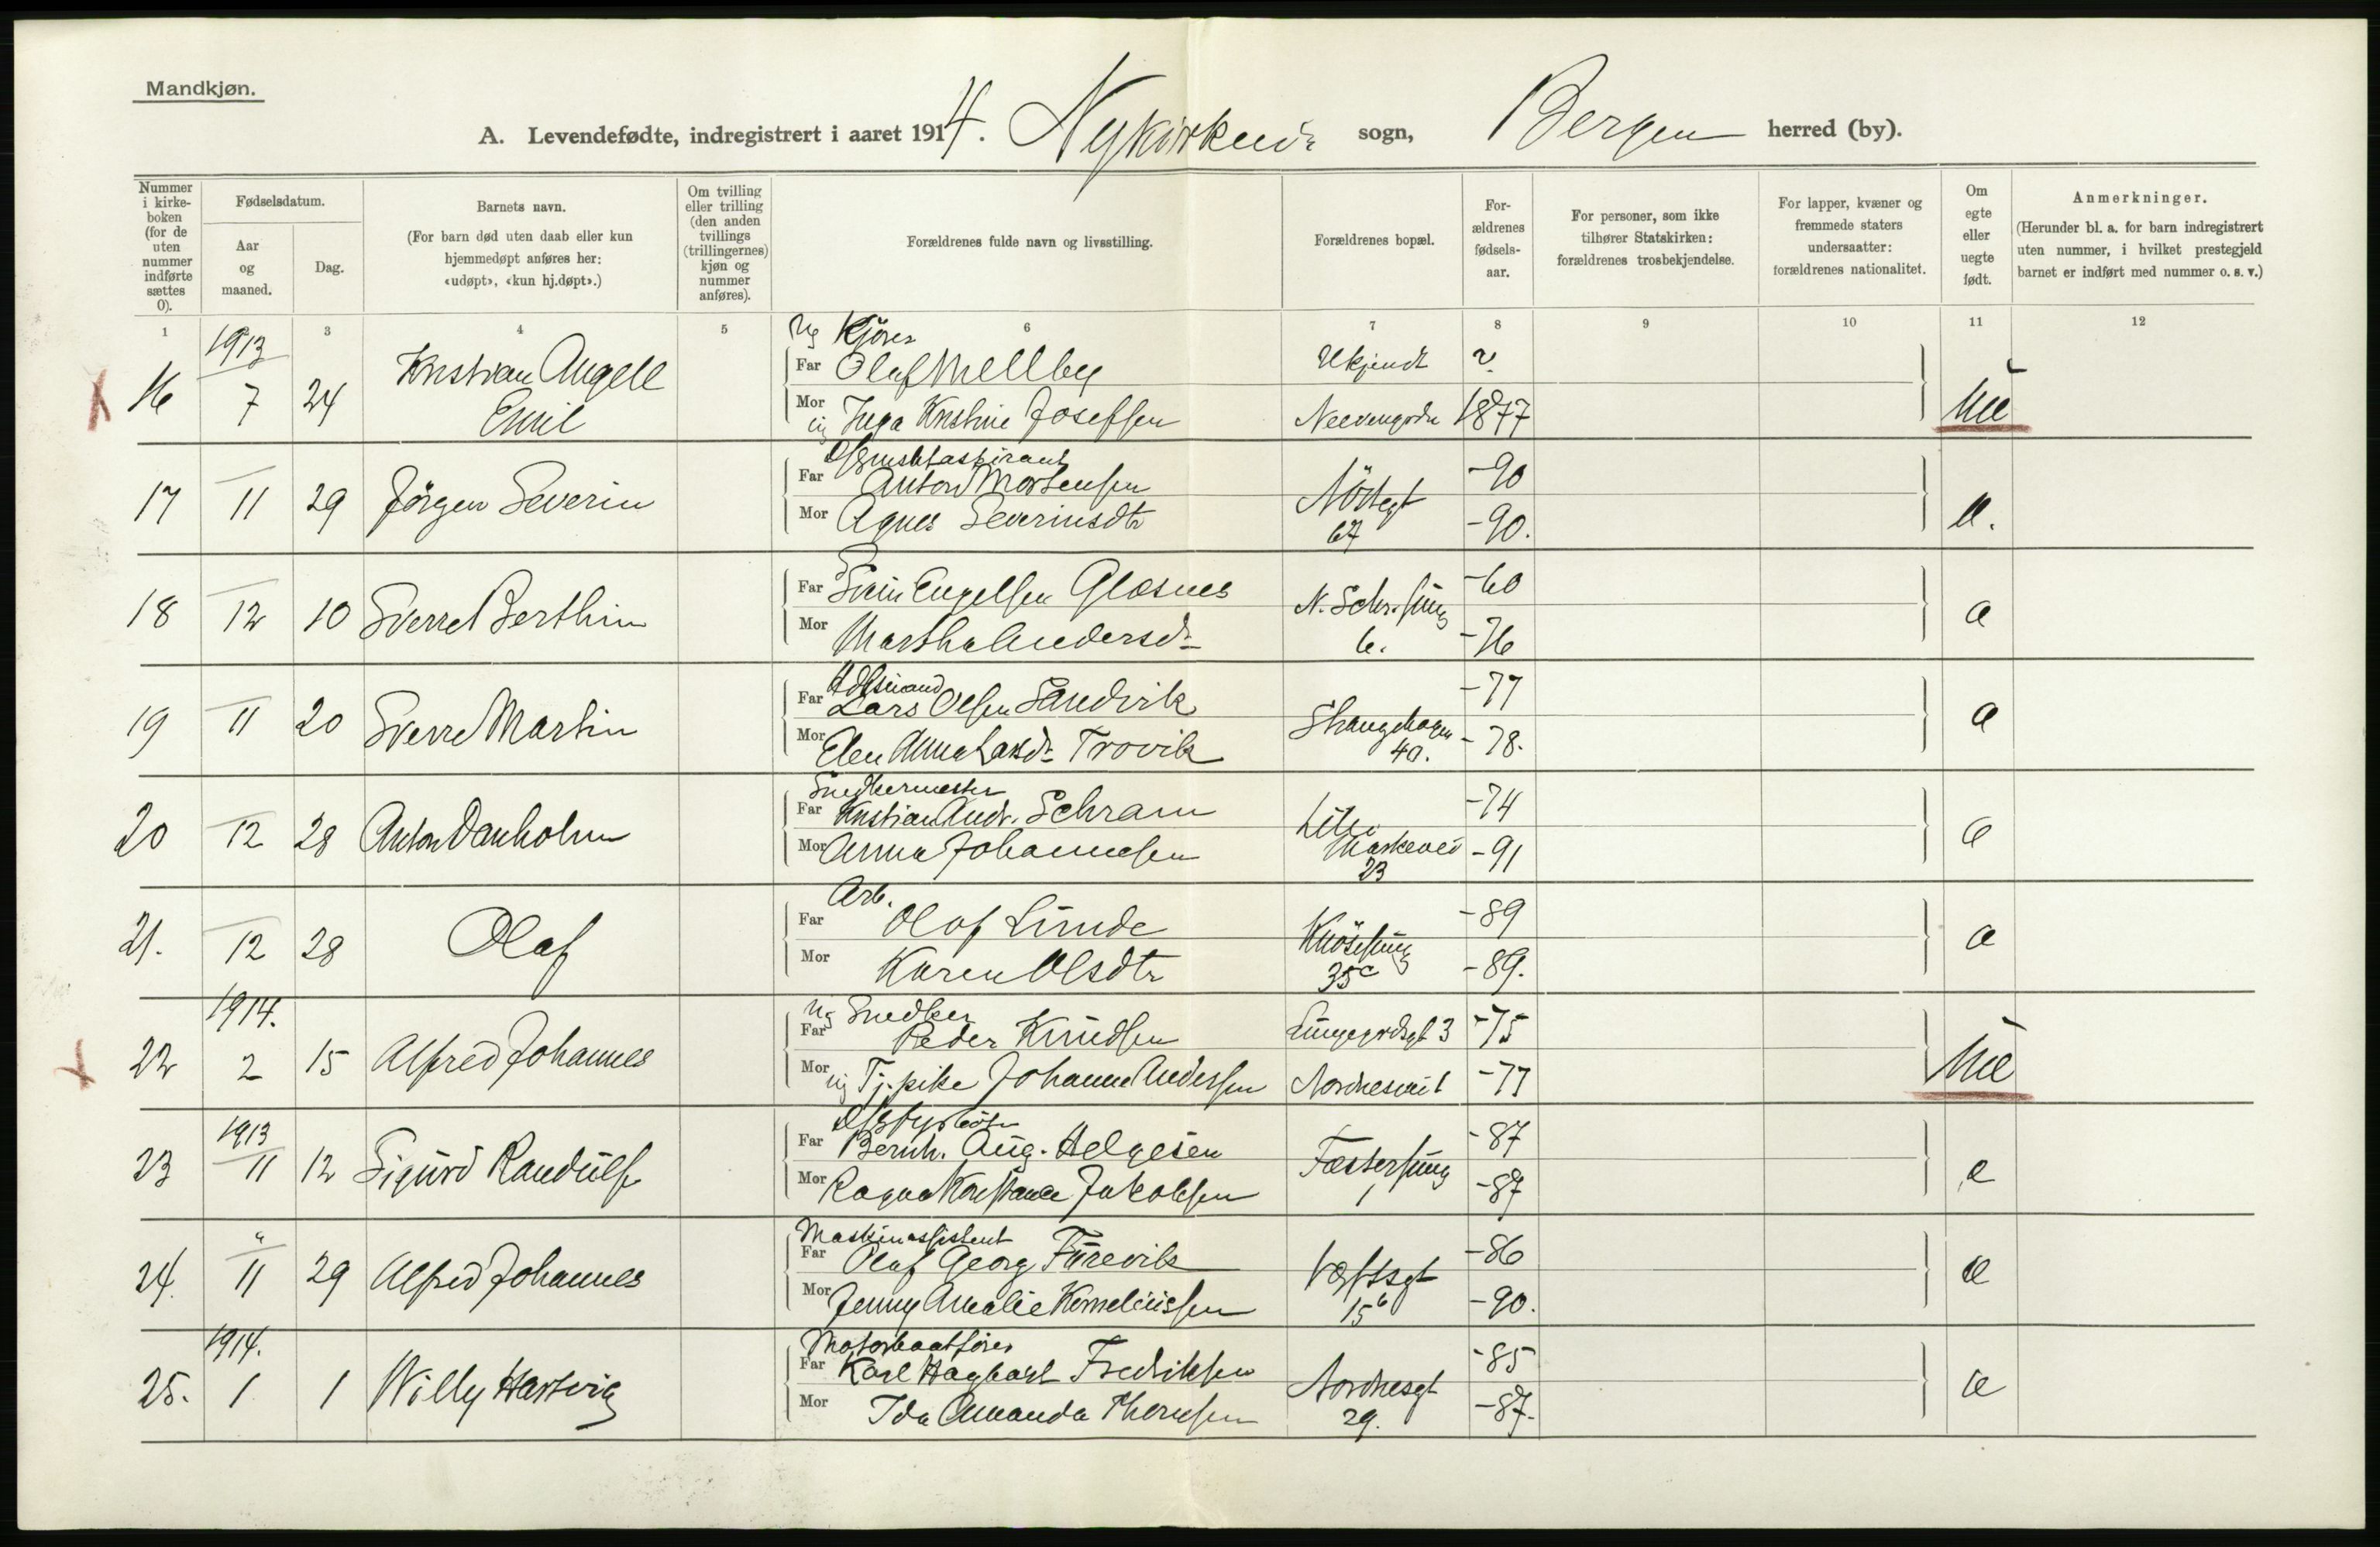 Mandkjøn.
A. Levendefødte, indregistrert i aaret 1914. Nykirkens sogn, Bergen herred (by).
Nummer i kirke-boken (for de uten nummer indførte sættes 0).
Fødselsdatum.
Aar og maaned.
Dag.
Barnets navn.
(For barn død uten daab eller kun hjemmedøpt anføres her: «udøpt», «kun hj.døpt».)
Om tvilling eller trilling (den anden tvillings (trillingernes) kjøn og nummer anføres).
Forældrenes fulde navn og livsstilling.
Forældrenes bopæl.
For-ældrenes fødsels-aar.
For personer, som ikke tilhører Statskirken: forældrenes trosbekjendelse.
For lapper, kvæner og fremmede staters undersaatter: forældrenes nationalitet.
Om egte eller uegte født.
Anmerkninger.
(Herunder bl. a. for barn indregistrert uten nummer, i hvilket prestegjeld barnet er indført med nummer o. s. v.)
1 3 4 5 6 7 8 9 10 11 12
1913
Ug Kjører
16 7 24 Kristian Angell Emil
Far Olaf Mellbye Ukjendt ?
Mor ug Inga Kristine Josefsen Neevengrdn 1877
17 11 29 Jörgen Severin
Far Anton Mortensen Nöstegt 67 -90
Mor Agnes Severinsdtr -90.
18 12 10 Sverre Berthin
Far Engelsen Glesnes N. Schr.smug 6. -60
Mor Martha Andersdr -76
19 11 20 Sverre Martin
Far Lars Olsen Sandvik Strangehagen -77
Mor Elen Anna Larsdr Trovik -78.
Snedkermester
20 12 28 Anton Danholm
Far Kristian Andr. Schram Lille Markevei 23 -74
Mor Anna Johannesen -91
Arb.
21. 12 28 Olaf
Far Olaf Lunde Knösesmug 35c -89
Mor Karen Olsdtr -89.
1914.
Ug Snedker
22 2 15 Alfred Johannes
Far Peder Knudsen Lungegrdsgt 3 -75
Mor ug Tj.pike Johanne Andersen Nordnesvei 1 -77
1913
23 11 12 Sigurd Randulf
Far Bernh. Aug. Helgesen Fæstersmug 1 -87 e
Mor Ragna Konstance Jakobsen -87
Maskinassistent
24. " 11 29 Alfred Johannes
Far Olaf Georg Furevik 15b -86
Mor Jenny Amalie Korneliussen -90.
1914.
Motorbaatfører
25. 1 1 Willy Hartvig
Far Karl Hagbart Fredriksen Nordnesgt 29. -85
Mor Ida Amanda Thomsen -87.